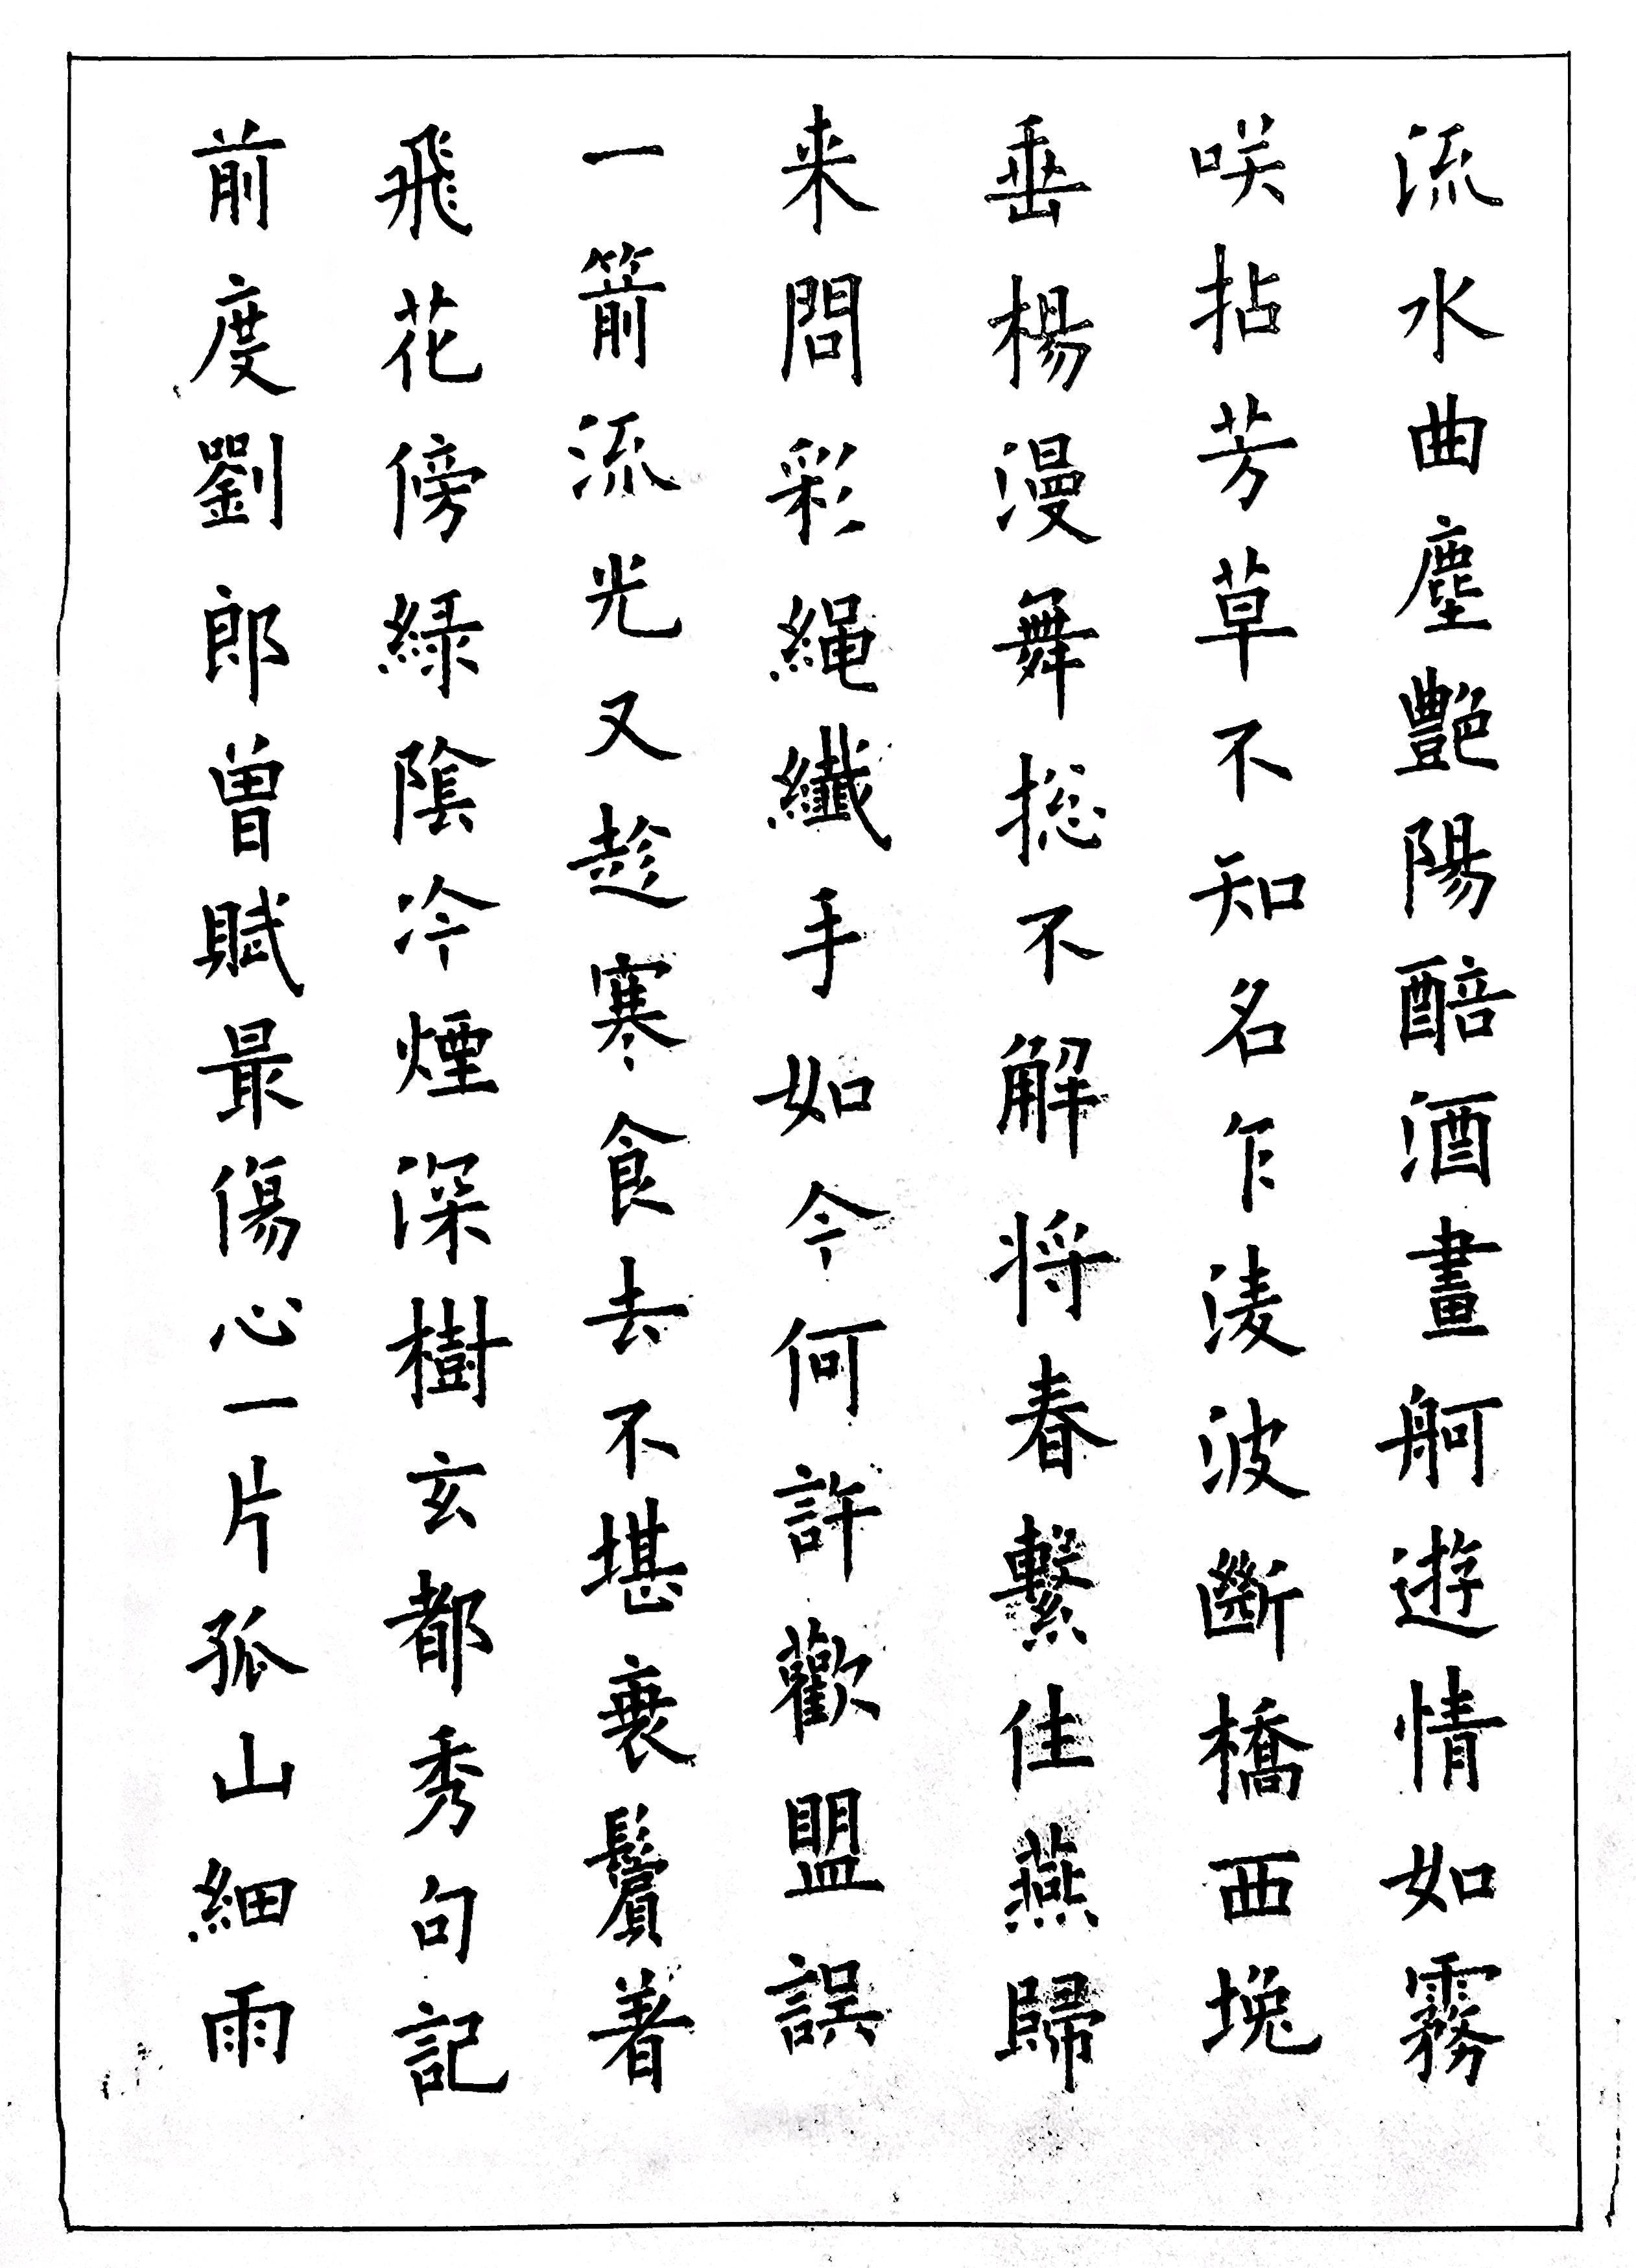 流水曲塵艷陽醅酒畫舸遊情如霧
咲拈芳草不知名乍淩波斷橋西堍
垂楊漫舞揔不解将春繫住燕歸
来問彩繩纖手如今何許歡盟誤
一箭流光又趁寒食去不堪衰鬢着
飛花傍緑陰冷煙深樹玄都秀句記
前度劉郎曾賦最傷心一片孤山細雨